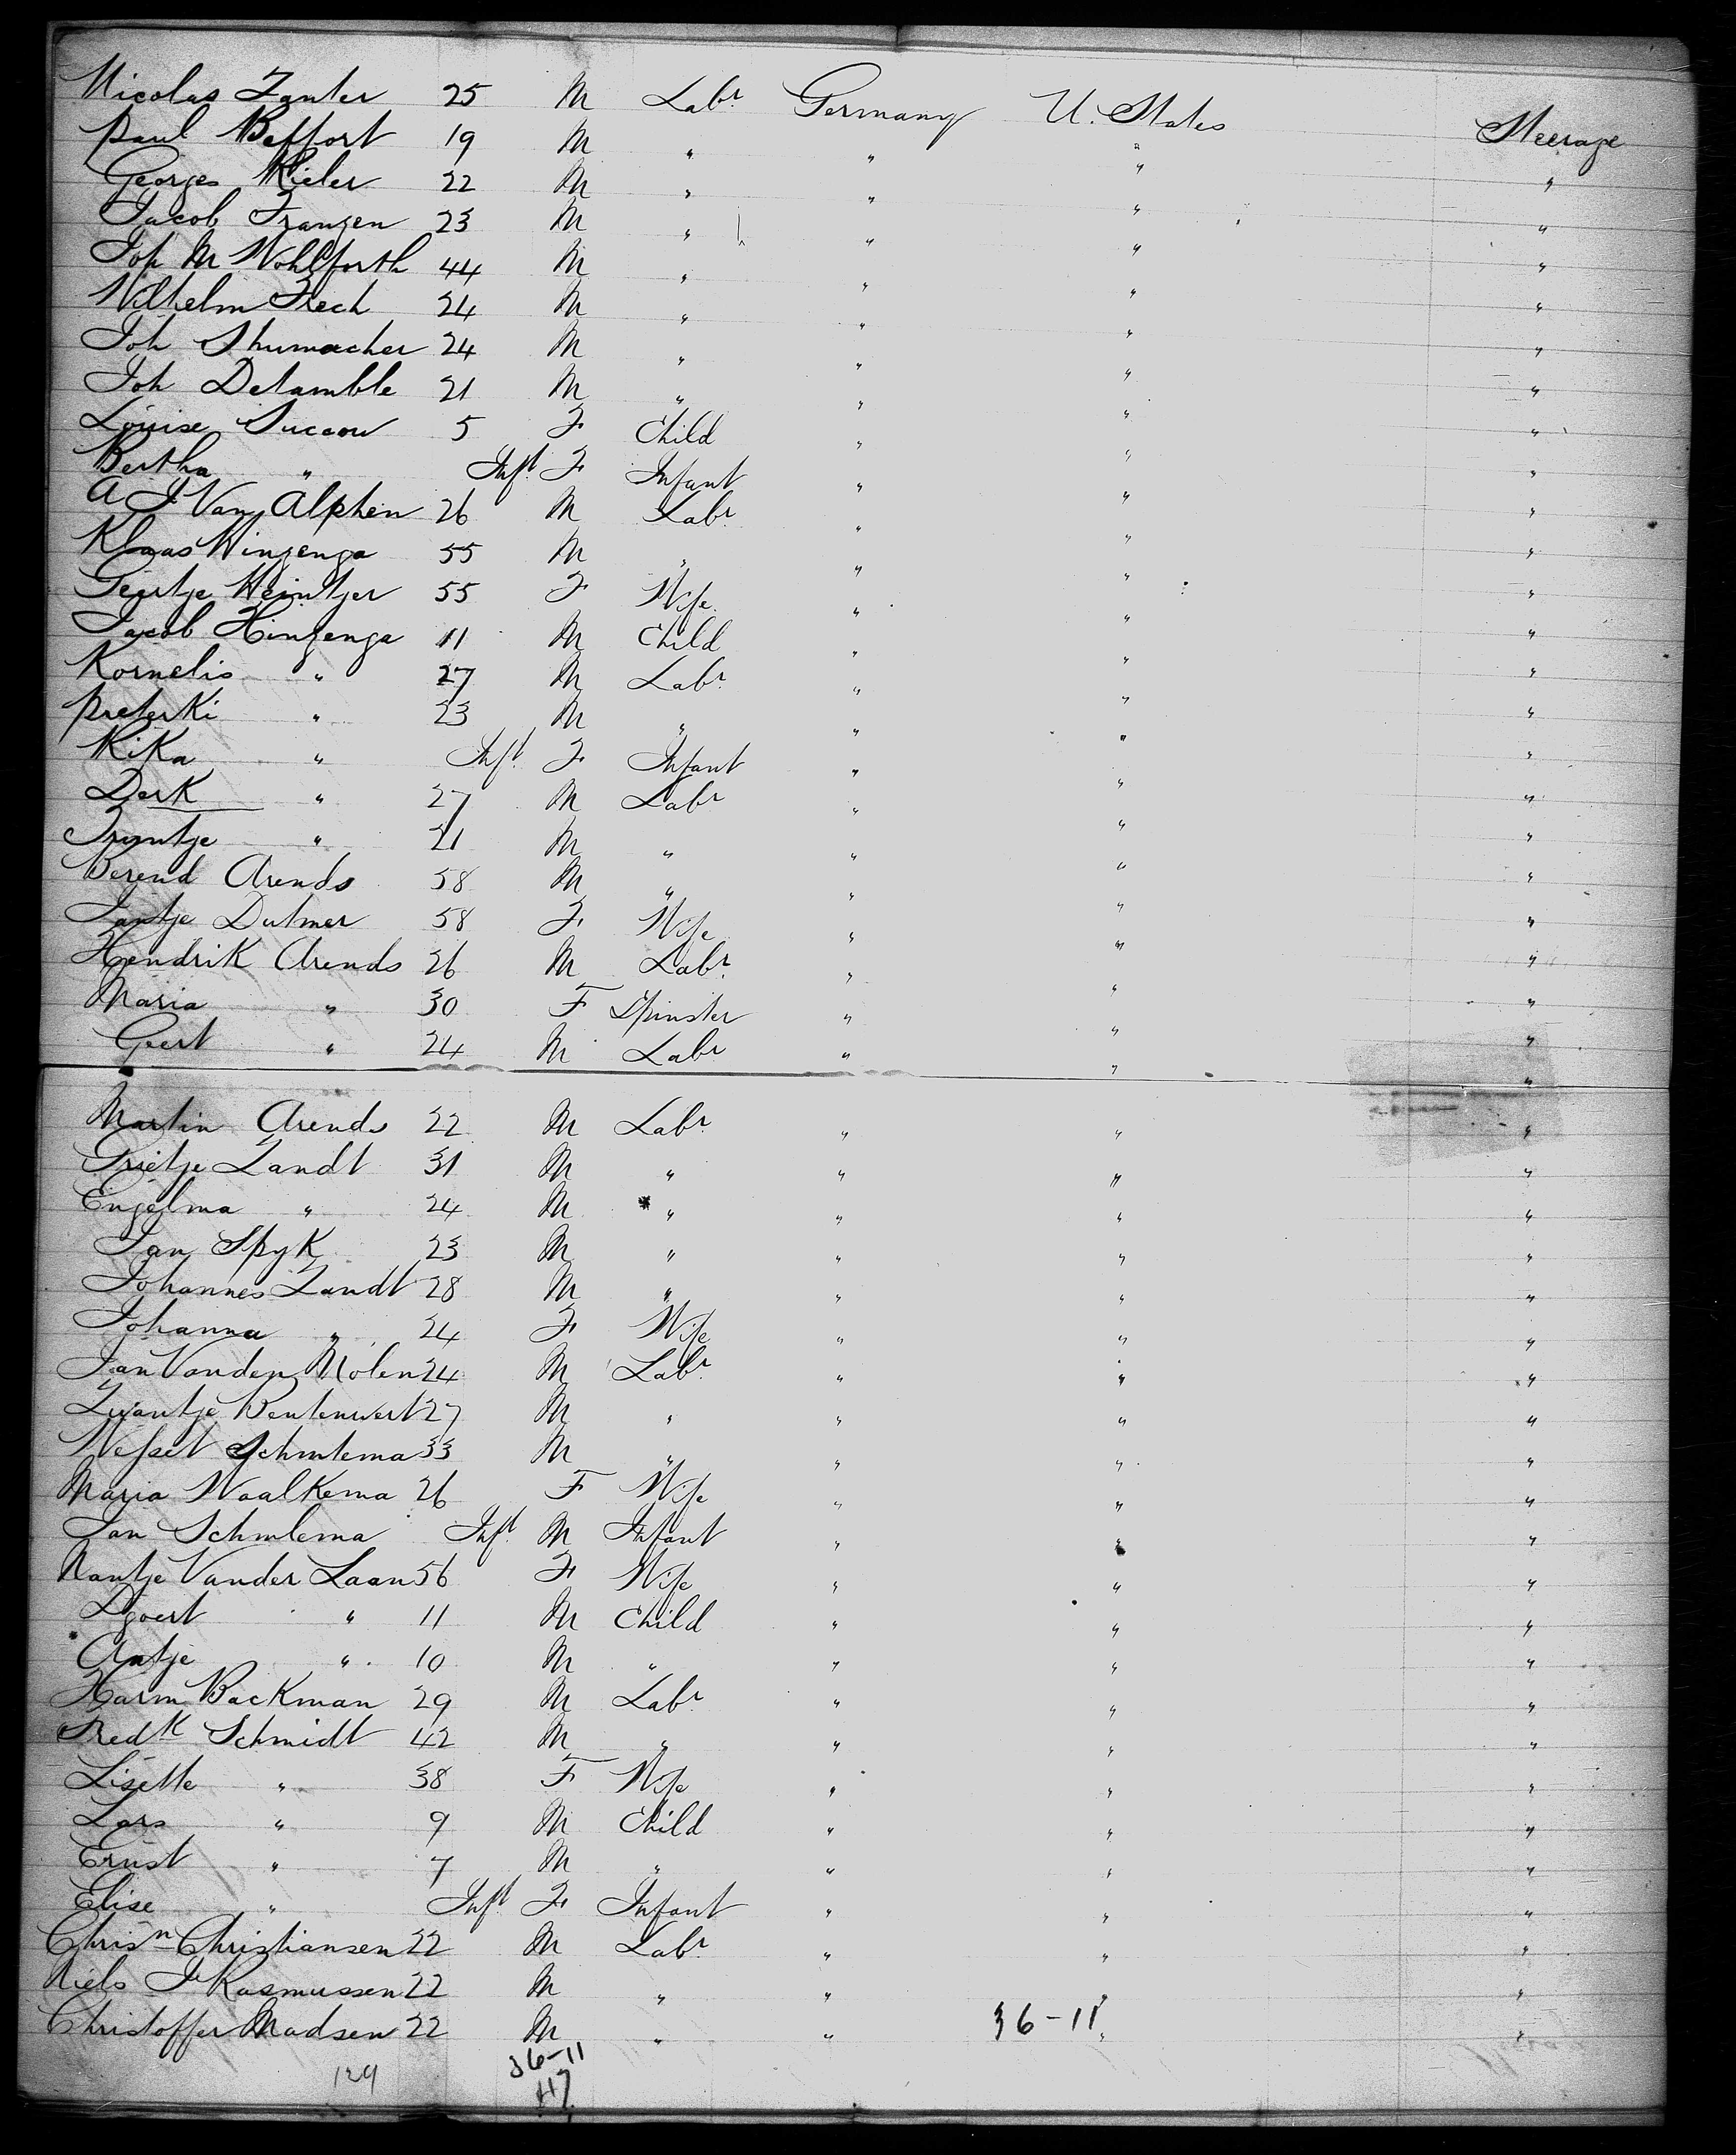 Nicolas Zanter 25 M Labr Germany U. States Steerage
Paul Beffort 19 M " " " "
Georges Kieler 22 M " " " "
Jacob Franzen 23 M " " " "
Joh M Wohlforth 44 M " " " "
Wilhelm Frech 24 M " " " "
Joh Shumacher 24 M " " " "
Joh Detamble 21 M " " " "
Louise Succow 5 F Child " " "
Bertha " Inft F Infant " " "
A J Van Alphen 26 M Labr " " "
Klaas Hinzenga 55 M " " " "
Geertje Heintjer 55 F Wife " " "
Jacob Hinzenga 11 M Child " " "
Kornelis " 27 M Labr " " "
Preterki " 23 M " " " "
Rika " Inft F Infant " " "
Derk " 27 M Labr " " "
Tryntje " 21 M " " " "
Berend Arends 58 M " " " "
Jantje Dutmer 58 F Wife " " "
Hendrik Arends 26 M Labr " " "
Maria " 30 F Spinster " " "
Geert " 24 M Labr " " "
Martin Arends 22 M Labr " " "
Grietje Zandt 31 M " " " "
Engelma " 24 M " " " "
Jan Spyk 23 M " " " "
Johannes Zandt 28 M " " " "
Johanna " 24 F Wife " " "
Jan Vanden Molen 24 M Labr " " "
Zwantje Bentenwert 27 M " " " "
Wessel Schmlema 33 M " " " "
Maria Waalkema 26 F Wife " " "
Jan Schmlema Inft M Infant " " "
Nantje Vander Laan 56 F Wife " " "
Djoert " 11 M Child " " "
Antje " 10 M " " " "
Harm Backman 29 M Labr " " "
Fredk Schmidt 42 M " " " "
Lisette " 38 F Wife " " "
Lars " 9 M Child " " "
Ernst " 7 M " " " "
Elise " Inft F Infant " " "
Chrisn Christiansen 22 M Labr " " "
Niels J Rasmussen 22 M " " " "
Christoffer Madsen 22 M " " 36-11 " "
129 36-11
47